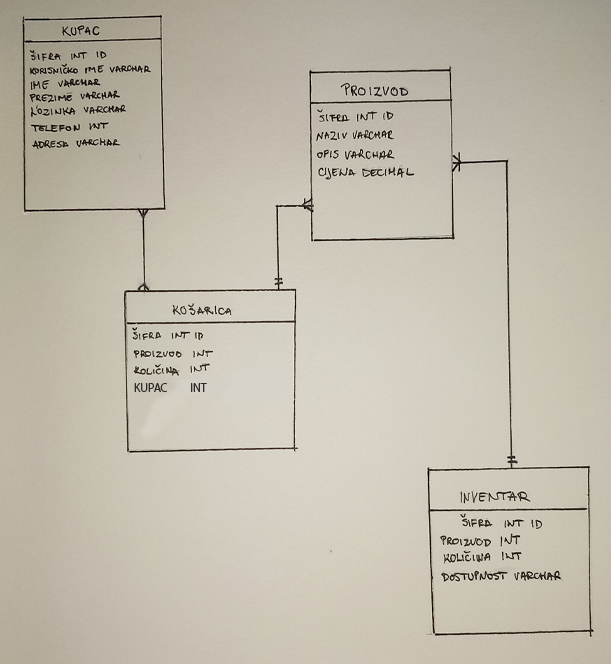 KUPAC
ŠIFRA INT ID
KORISNIČKO IME VARCHAR
IME VARCHAR
PREZIME VARCHAR
LOZINKA VARCHAR
TELEFON INT
ADRESA VARCHAR
PROIZVOD
ŠIFRA INT ID
NAZIV VARCHAR
OPIS VARCHAR
CIJENA DECIMAL
KOŠARICA
ŠIFRA INT ID
PROIZVOD INT
KOLIČINA INT
KUPAC INT
INVENTAR
ŠIFRA INT ID
PROIZVOD INT
KOLIČINA INT
DOSTUPNOST VARCHAR